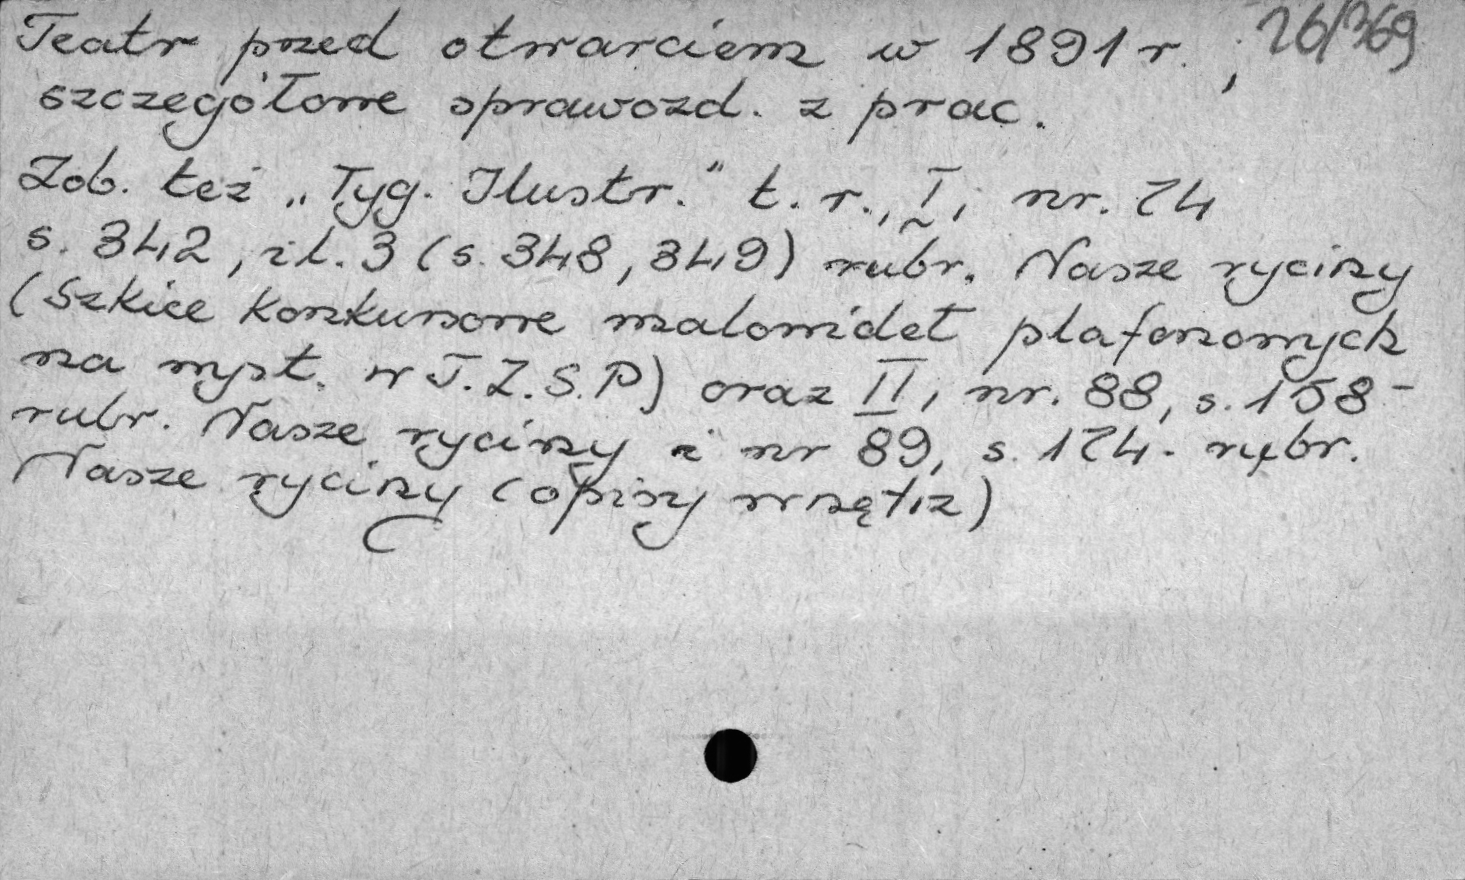 Teatr przed otwarciem w 1891 r., 26/369
szczegółowe sprawozd. z prac.
Zob. też „Tyg. Ilustr." t. r., I, nr. 74
s. 342, il. 3 (s. 348, 349) rubr. Nasze ryciny
(Szkice konkursowe malowideł plafonowych
na wyst. w T.Z.S.P) oraz II, nr. 88, s. 158 -
rubr. Nasze ryciny i nr 89, s. 174. rubr.
Nasze ryciny (opisy wnętrz)